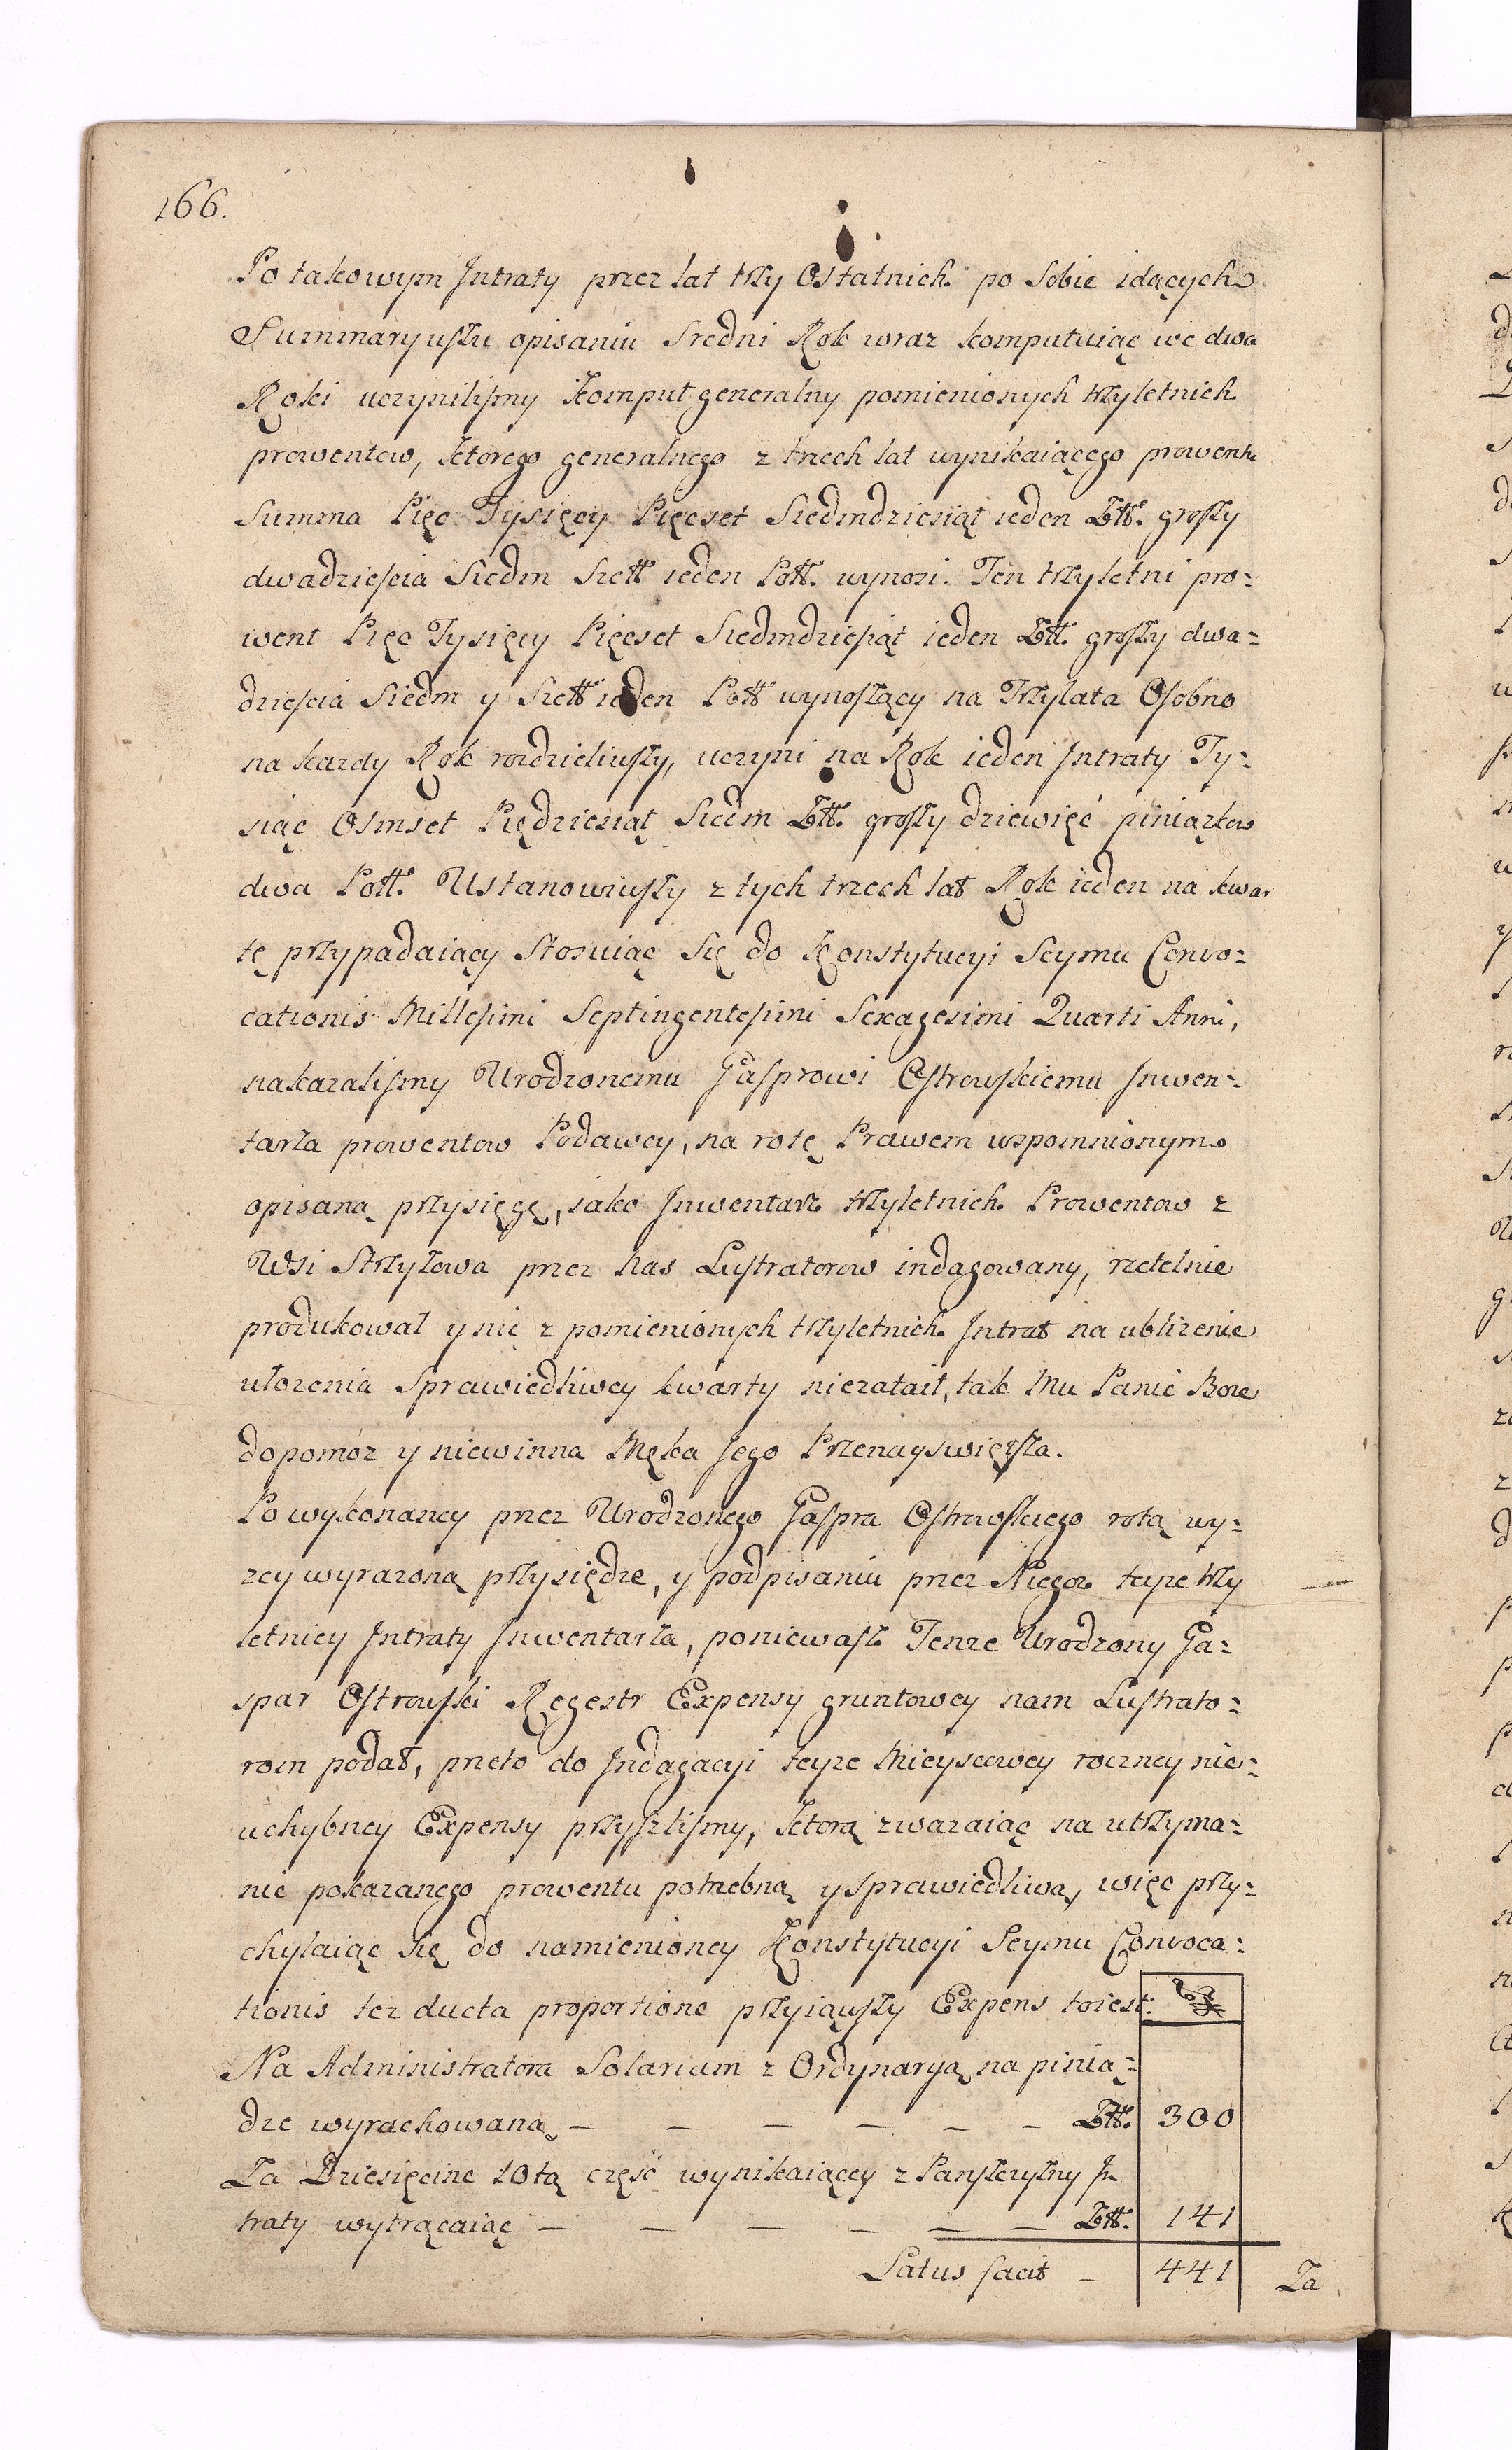 166.
Po takowym Jntraty przez lat trzy Ostatnich po Sobie idących
Summaryuszu opisaniu Sredni Rok wraz komputuiąc we dwa
Roki uczynilismy Komput generalny pomienionych trzyletnich
prowentow, ktorego generalnego z trzech lat wynikaiącego prowentu
Summa Pięc Tysięcy Pięcset Siedmdziesiąt ieden Złł. groszy
dwadziescia Siedm Szelł ieden Poll. wynosi. Ten trzyletni pro=
went Pięc Tysięcy Pięcset Siedmdziesiąt ieden Złł. groszy dwa=
dziescia Siedm y Szelł ieden Poll wynoszący na Trzylata Osobno
na kazdy Rok rozdzieliwszy, uczyni na Rok ieden Jntraty Ty=
siąc Osmset Piędziesiąt Siedm Złł. groszy dziewięć piniązkow
dwa Poll. Ustanowiwszy z tych trzech lat Rok ieden na kwar
tę przypadaiący Stosuiąc Się do Konstytucyi Seymu Convo=
cationis Millesimi Septingentesimi Sexagesimi Quarti Anni,
nakazalismy Urodzonemu Gasprowi Ostrowskiemu Jnwen=
tarza prowentow Podawcy, na rotę Prawem wspomnionym
opisaną przysięgę, iako Jnwentarz trzyletnich Prowentow z
Wsi Strzyzowa przez nas Lustratorow indagowany, rzetelnie
produkował y nic z pomienionych trzyletnich Jntrat na ublizenie
ułozenia Sprawiedliwey kwarty niezataił, tak Mu Panie Boze
dopomóz y niewinna Męka Jego Przenayswiętsza.
Po wykonaney przez Urodzonego Gaspra Ostrowskiego rotą wy=
zey wyrazoną przysiędze, y podpisaniu przez Niego teyze trzy
letniey Jntraty Jnwentarza, poniewasz Tenze Urodzony Ga=
spar Ostrowski Regestr Expensy gruntowey nam Lustrato=
rom podał, przeto do Jndagacyi teyze Mieyscowey roczney nie=
uchybney Expensy przyszlismy, ktorą zwazaiąc na utrzyma=
nie pokazanego prowentu potrzebną y sprawiedliwą, więc przy=
chylaiąc się do namienioney Konstytucyi Seymu Convoca=
tionis tez ducta proportione przyiąwszy Expens toiest:
Na Administratora Solarium z Ordynaryą na pinią=
dze wyrachowaną — — — — — — Złł. 300
Za Dziesięcine 10tą część wynikaiącey z Panszczyzny Jn
traty wytrącaiąc — — — — — — Złł. 141
Latus facit — 441
Za